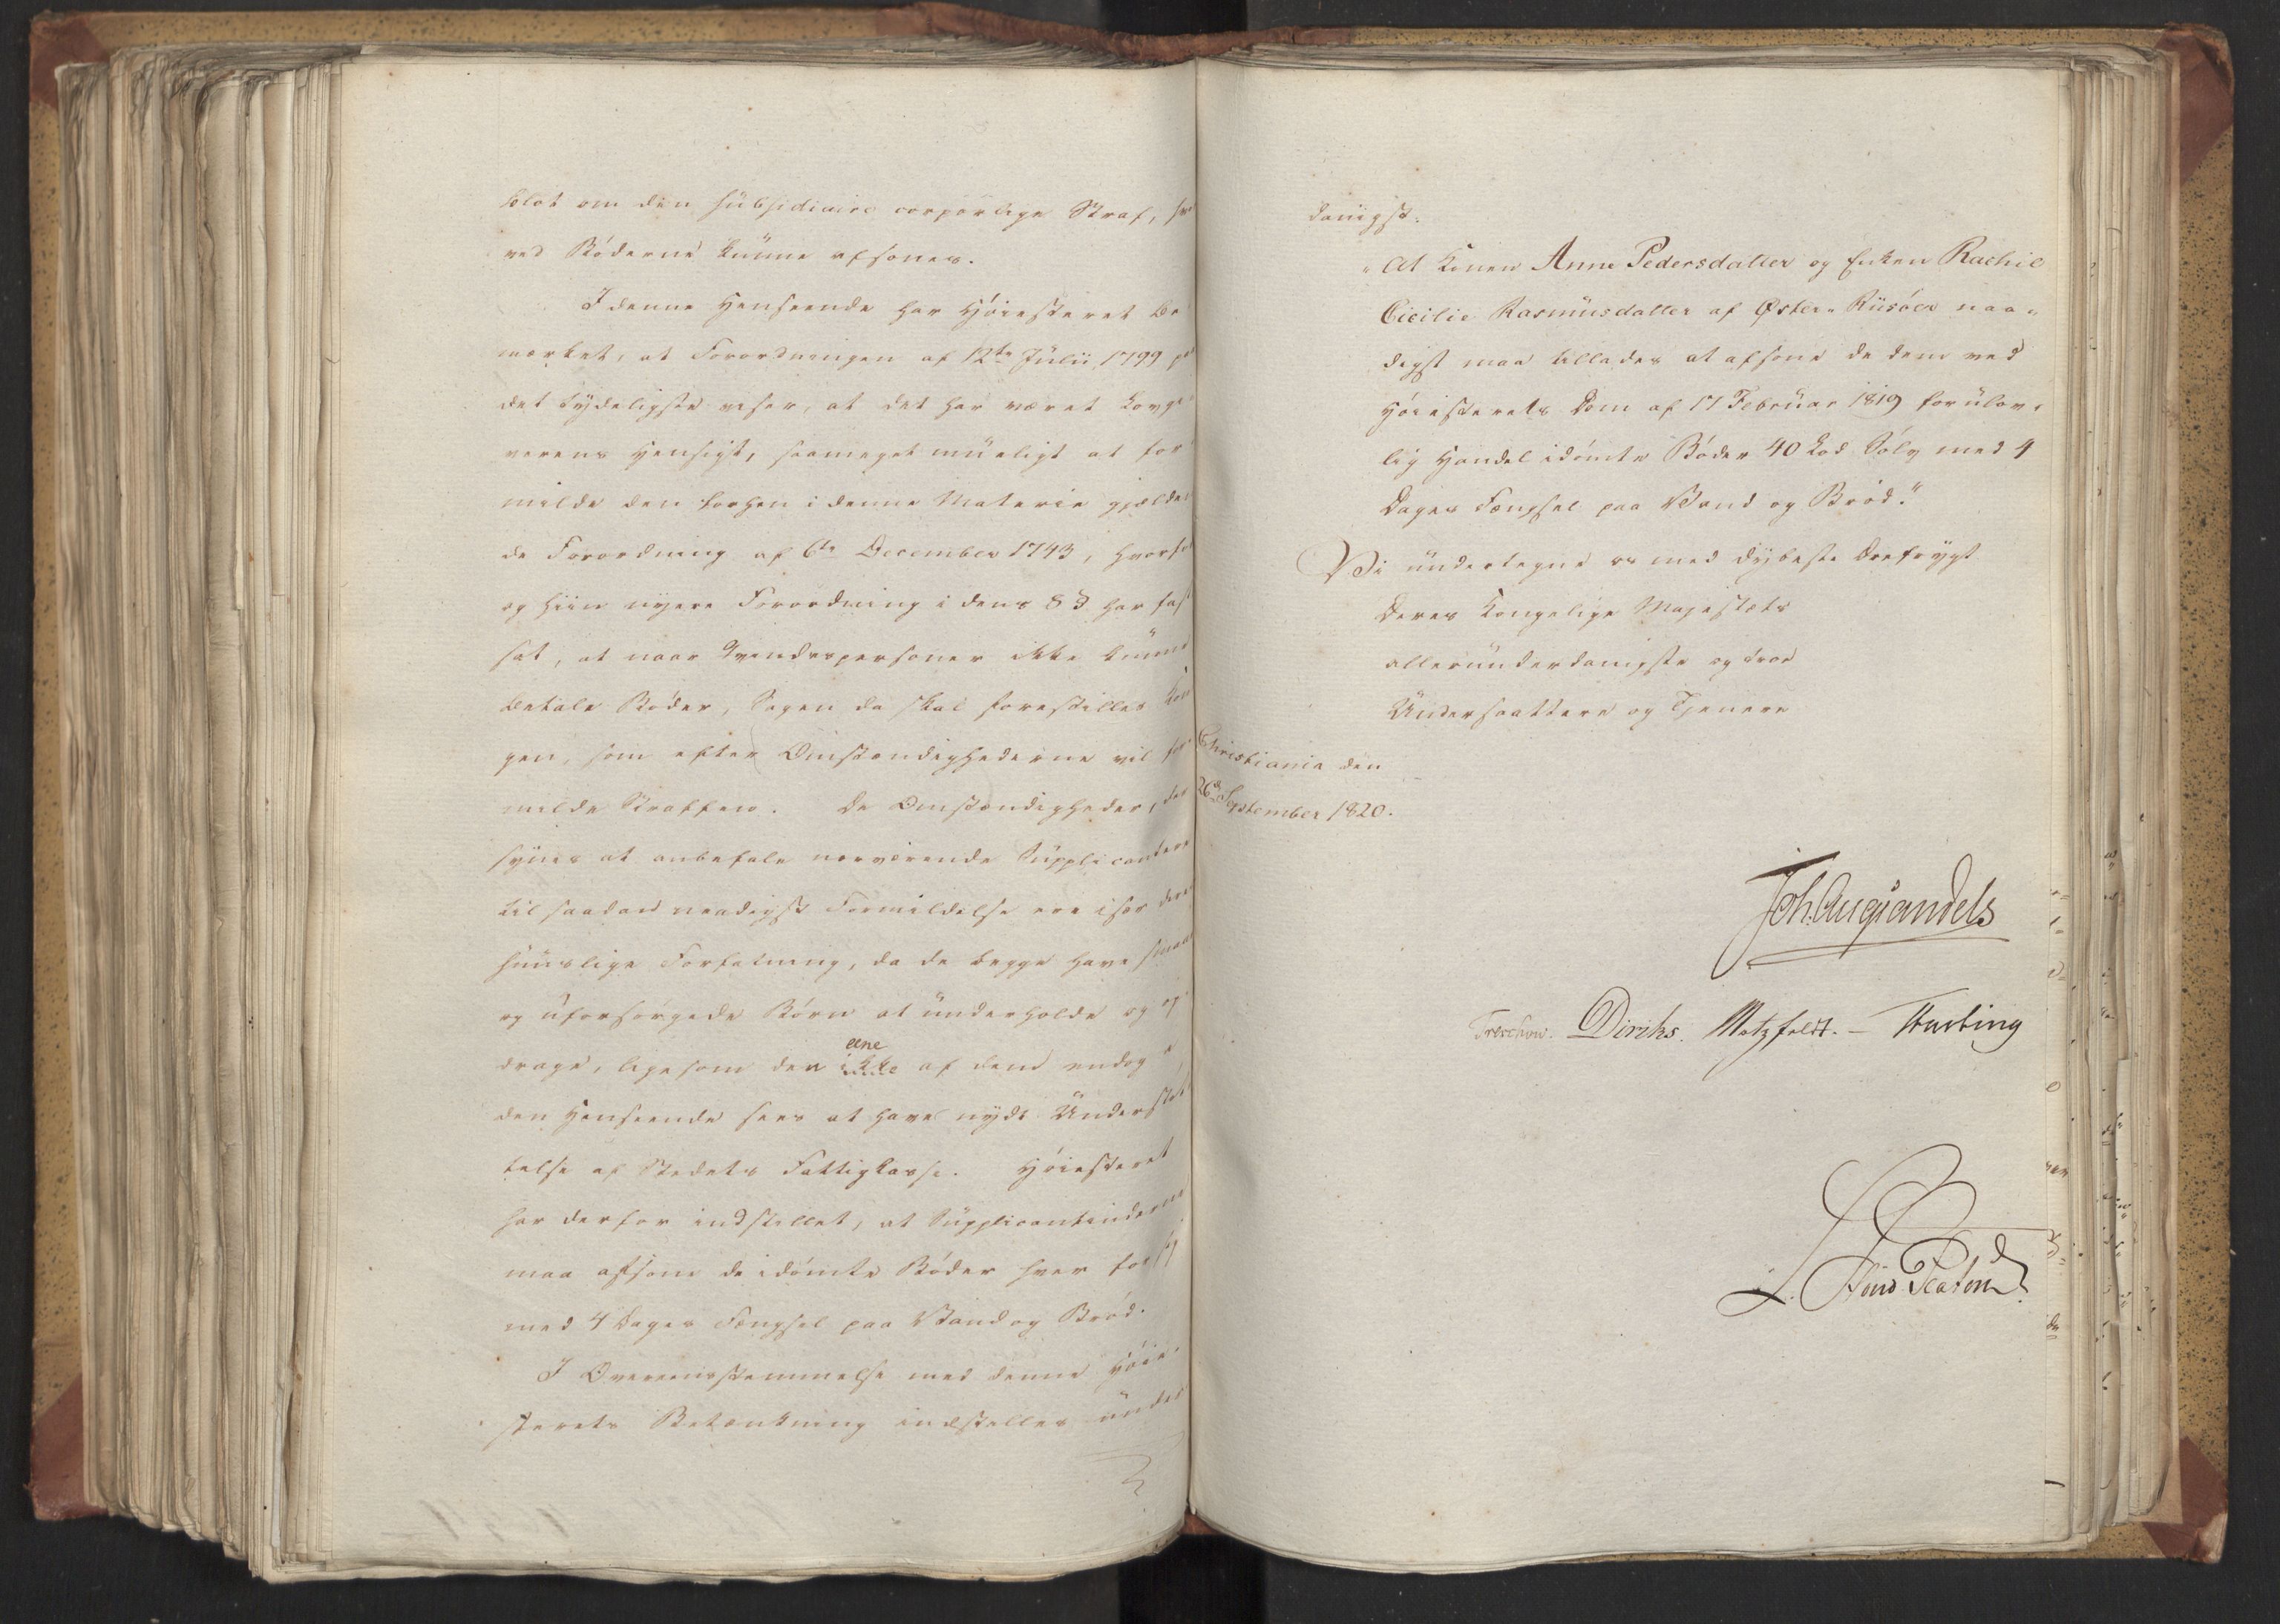 blot om den subsidiaire corporlige Straf, hvor
ved Böderne kunne afsones.
I denne Henseende har Höiesteret be
mærket, at Forordningen af 12te Julii 1799 paa
det tydeligste viser, at det har været Lovgi
verens Hensigt, saameget mueligt at for
milde den forhen i denne Materie gjælden
de Forordning af 6te December 1743, hvorfor
og hiin nyere Forordning i dens 8 § har fast
sat, at naar Qvindespersoner ikke kunne
betale Böder, Sagen da skal forestilles Kon
gen, som efter Omstændighederne vil for
milde Straffen. De Omstændigheder, der
synes at anbefale nærværende Supplicantere
til saadan naadigst Formildelse ere især deres
huuslige Forfatning, da de begge have smaa
og uforsörgede Börn at underholde og op
drage, ligesom den ene ikke af dem endog i
den Henseende sees at have nydt Understöt
telse af Stedets Fattigkasse. Höiesteret
har derfor indstillet, at Supplicantinderne
maa afsone de idömte Böder hver for sig
med 4 Dages Fængsel paa Vand og Bröd.
I Overeensstemmelse med denne Höie
sterets Betænkning indstilles under
danigst:
"At Konen Anne Pedersdatter og Enken Rachel
Cicilie Rasmusdatter af Øster-Riisöer naa-
digst maa tillades at afsone de dem ved
Höiesterets Dom af 17 Februar 1819 for ulov-
lig Handel idömte Böder 40 Lod Sölv med 4
Dages Fængsel paa Vand og Bröd."
Vi undertegne os med dybeste Ærefrygt
Deres Kongelige Majestæts
allerunderdanigste og troe
Undersaattere og Tjenere
Christiania den
26de September 1820.
Joh. Aug. Sandels
Treschow. Diriks. Motzfeldt. - Fasting